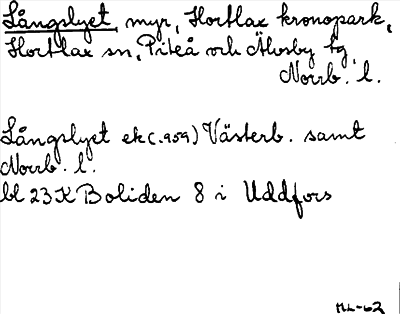 Långslyet, myr, Hortlax kronopark,
Hortlax sn, Piteå och Älvsby tg,
Norrb. l.
Långslyet ek (.959) Västerb. samt
Norrb. l.
bl 23K Boliden 8 i Uddfors
-62